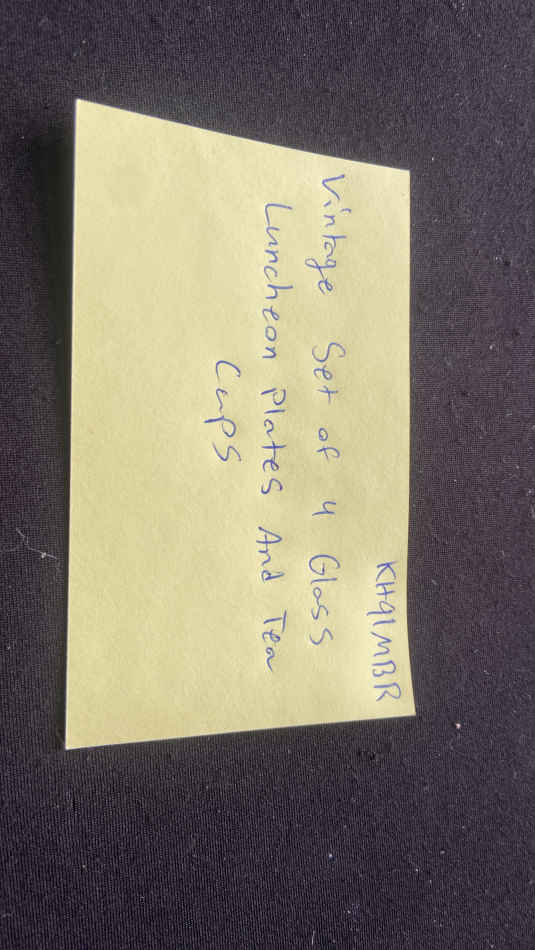 KH91MBR
Vintage Set of 4 Glass
Luncheon Plates And Tea
Cups